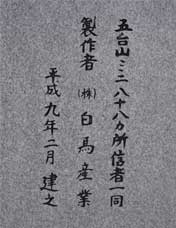 五台山ミニ八十八カ所信者一同
製作者 ㈱ 白馬産業
平成九年二月 建之